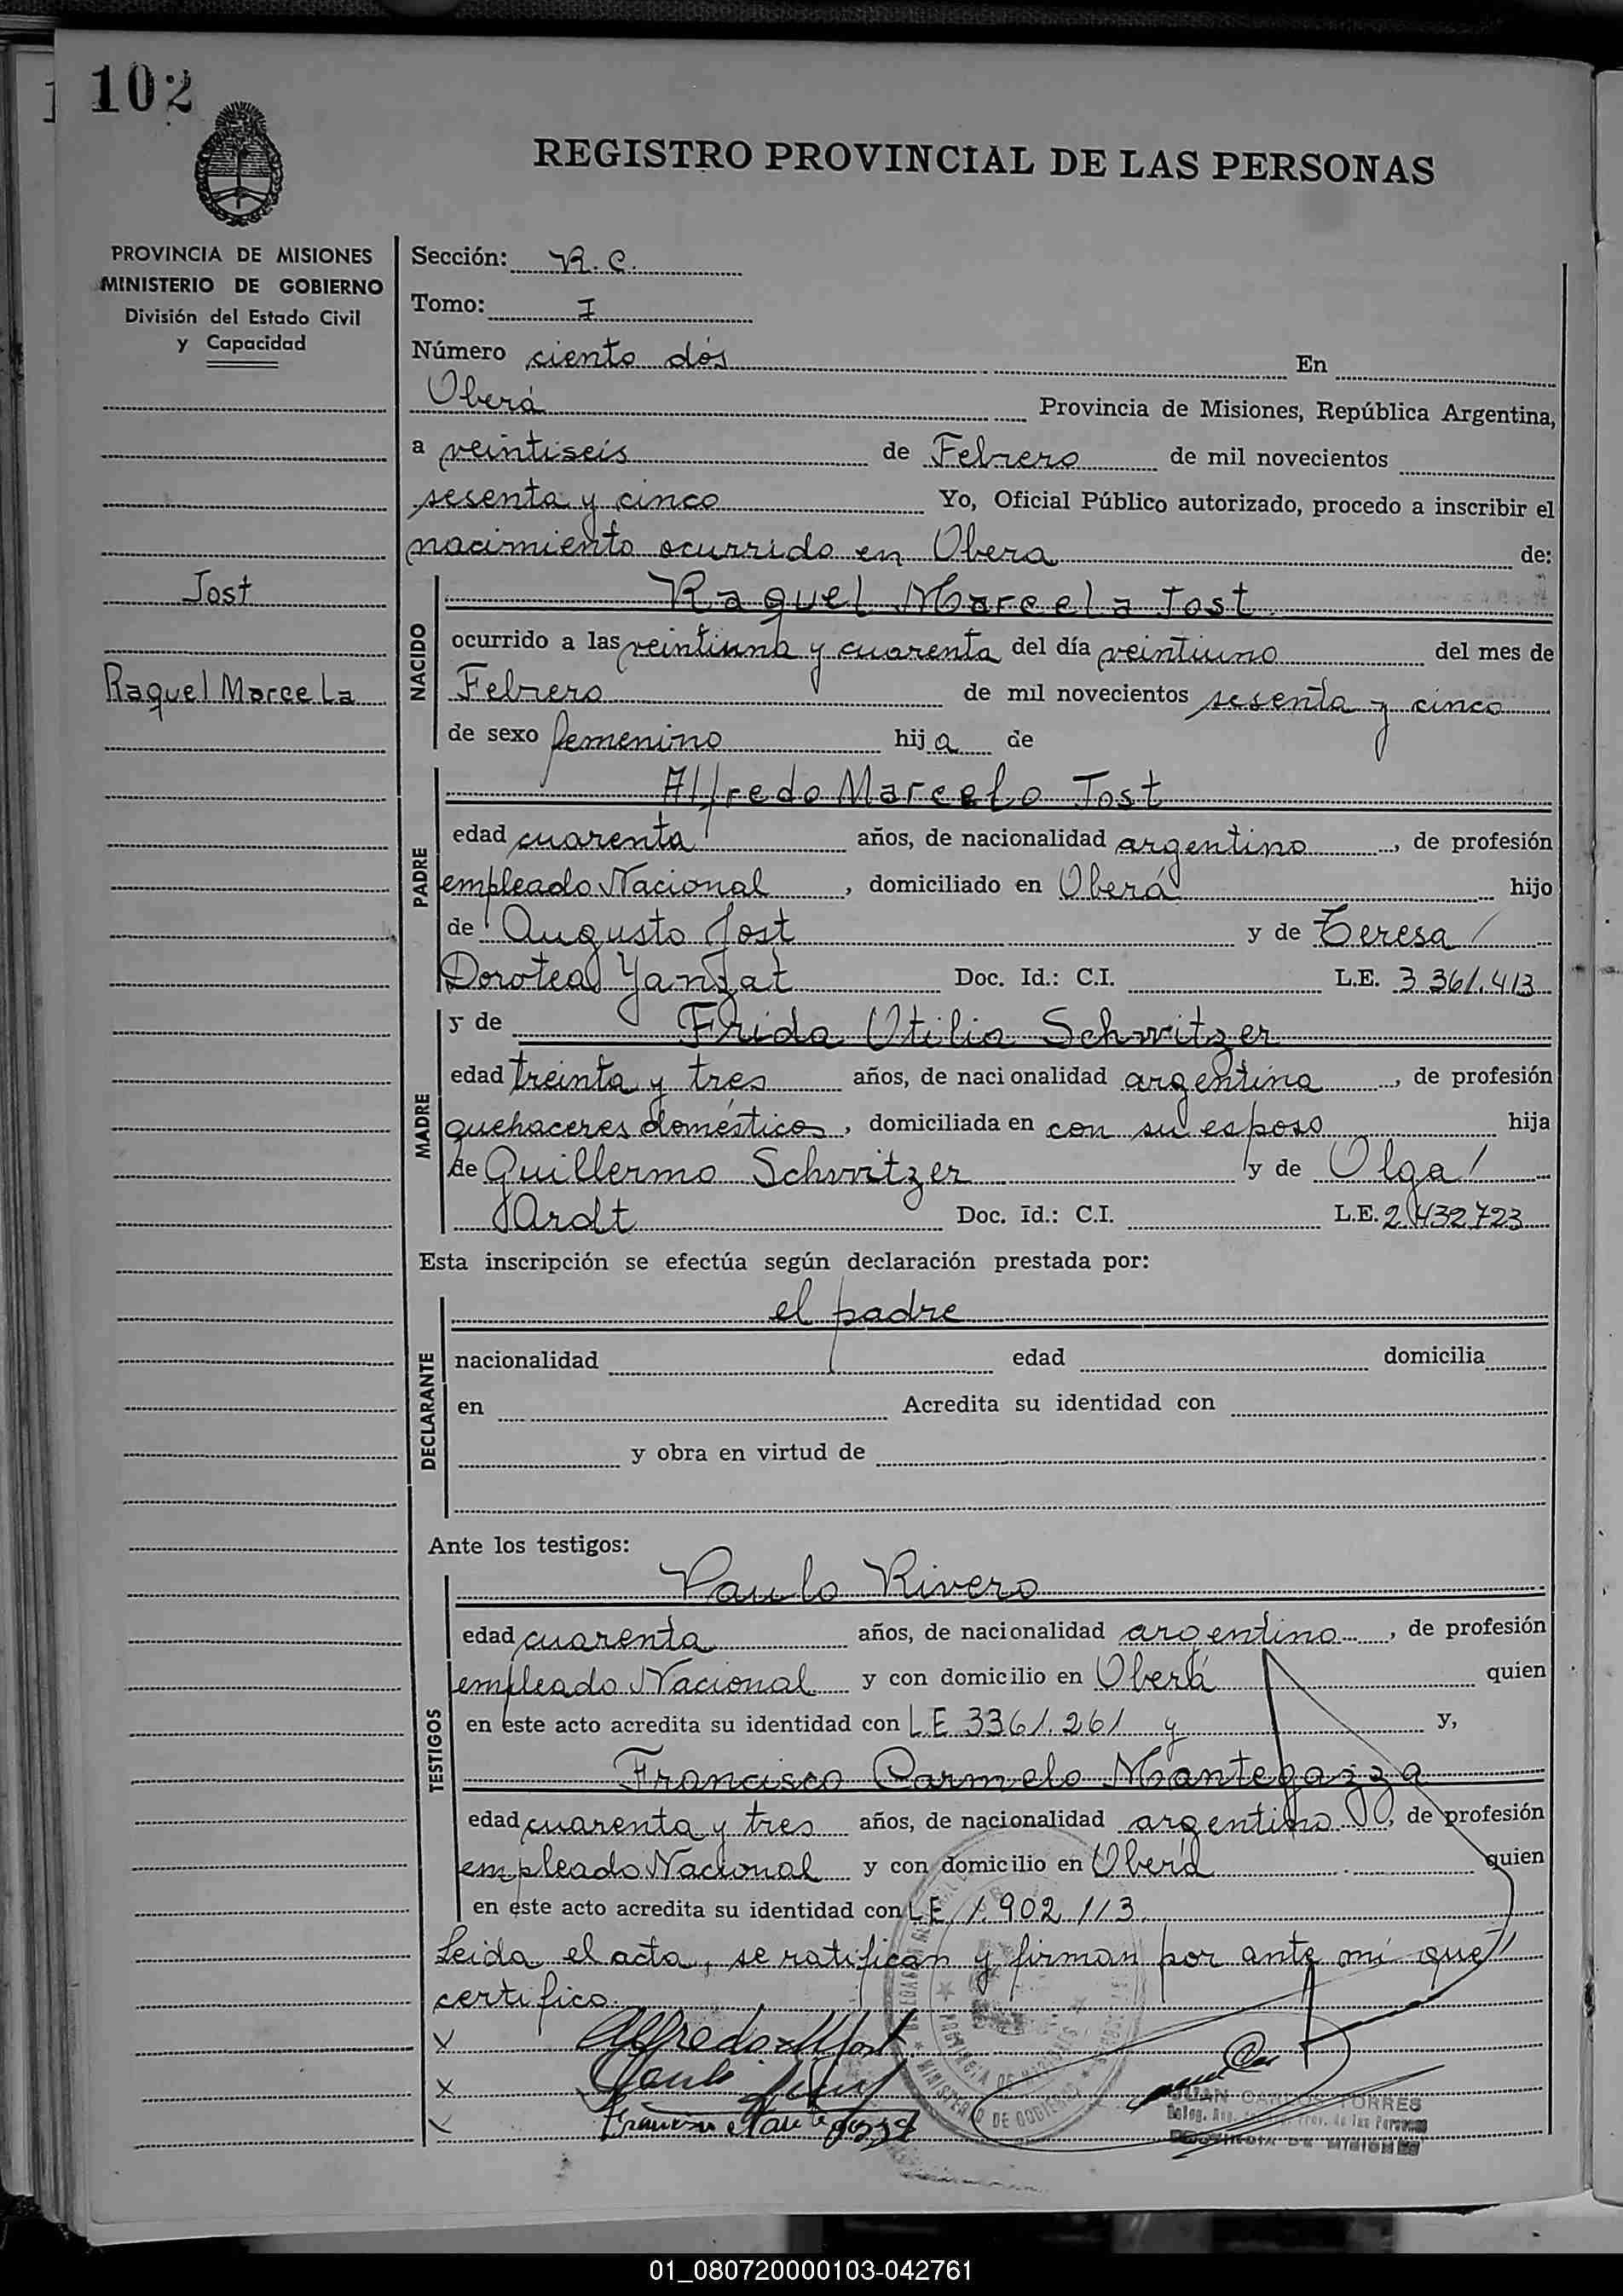 102
REGISTRO PROVINCIAL DE LAS PERSONAS
PROVINCIA DE MISIONES
MINISTERIO DE GOBIERNO
División del Estado Civil
y Capacidad
Jost
Raquel Marcela
Sección: R. C.
Tomo: I
Número ciento dós En
Oberá Provincia de Misiones, República Argentina,
a veintiseis de Febrero de mil novecientos
sesenta y cinco Yo, Oficial Público autorizado, procedo a inscribir el
nacimiento ocurrido en Obera de:
NACIDO
Raquel Marcela Jost
ocurrido a las veintiuna y cuarenta del día veintiuno del mes de
Febrero de mil novecientos sesenta y cinco
de sexo femenino hija de
PADRE
Alfredo Marcelo Jost
edad cuarenta años, de nacionalidad argentino, de profesión
empleado Nacional, domiciliado en Oberá hijo
de Augusto Jost y de Teresa
Dorotea Yanzat Doc. Id.: C.I. L.E. 3 361.413
MADRE
y de Frida Otilia Schwitzer
edad treinta y tres años, de nacionalidad argentina, de profesión
quehaceres domésticos, domiciliada en con su esposo hija
de Guillermo Schwitzer y de Olga
Ardt Doc. Id.: C.I. L.E. 2.432.723
Esta inscripción se efectúa según declaración prestada por:
DECLARANTE
el padre
nacionalidad edad domicilia
en Acredita su identidad con
y obra en virtud de
Ante los testigos:
TESTIGOS
Paulo Rivero
edad cuarenta años, de nacionalidad argentino, de profesión
empleado Nacional y con domicilio en Oberá quien
en este acto acredita su identidad con L E 3361.261 y y,
Francisco Carmelo Mantegazza
edad cuarenta y tres años, de nacionalidad argentino, de profesión
empleado Nacional y con domicilio en Oberá quien
en este acto acredita su identidad con L E 1.902.113
Leida el acta, se ratifican y firman por ante mi que
certifico.
x Alfredo M Jost
x
Francisco Mantegazza
MINISTERIO DE GOBIERNO
PROVINCIA DE MISIONES
JUAN CARLOS TORRES
Prov. de las Personas
PROVINCIA DE MISIONES
01_080720000103-042761